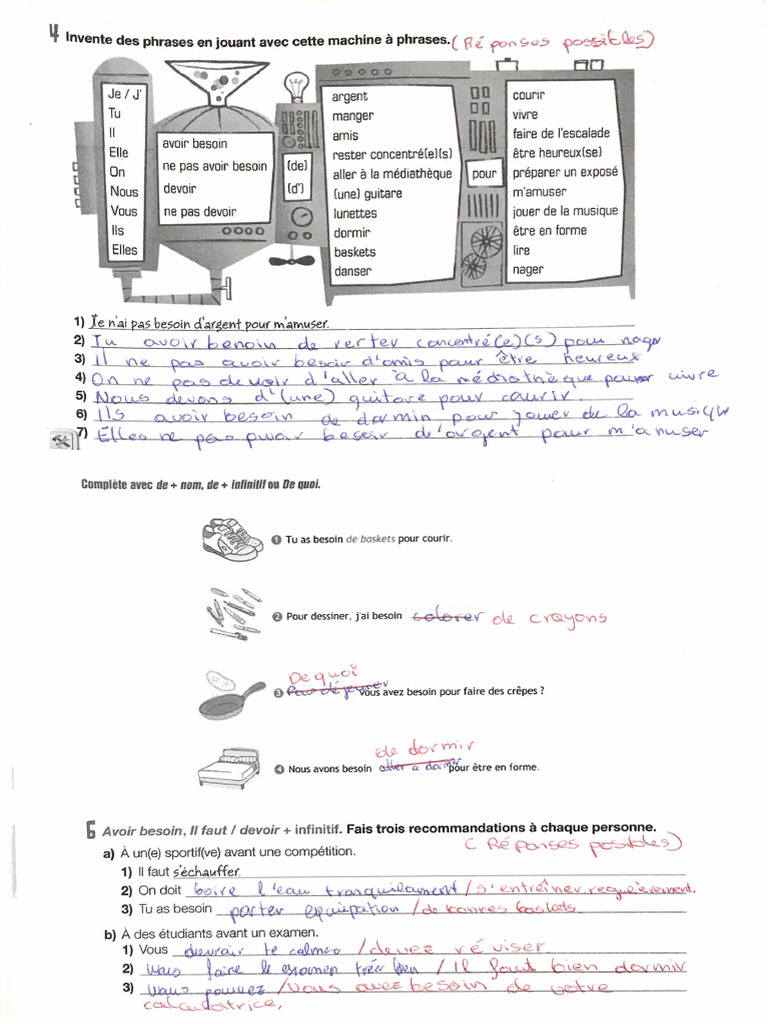 4 Invente des phrases en jouant avec cette machine à phrases. (Réponses possibles)
Je / J'
Tu
Il
Elle
On
Nous
Vous
Ils
Elles
avoir besoin
ne pas avoir besoin
devoir
ne pas devoir
(de)
(d')
argent
manger
amis
rester concentré(e)(s)
aller à la médiathèque
(une) guitare
lunettes
dormir
baskets
danser
pour
courir
vivre
faire de l'escalade
être heureux(se)
préparer un exposé
m'amuser
jouer de la musique
être en forme
lire
nager
1) Je n'ai pas besoin d'argent pour m'amuser.
2) Tu avoir besoin de rester concentré(e)(s) pour nager
3) Il ne pas avoir besoin d'amis pour être heureux
4) On ne pas devoir d'aller à la médiathèque pour vivre
5) Nous devons d'(une) guitare pour courir.
6) Ils avoir besoin de dormin pour jouer de la musique
7) Elles ne pas besoin d'argent pour m'amuser
Complète avec de + nom, de + infinitif ou De quoi.
1 Tu as besoin de baskets pour courir.
2 Pour dessiner, j'ai besoin colorer de crayons
De quoi
3 Pour déjeuner vous avez besoin pour faire des crêpes ?
de dormir
4 Nous avons besoin aller a dormir pour être en forme.
6 Avoir besoin, Il faut / devoir + infinitif. Fais trois recommandations à chaque personne.
(Réponses possibles)
a) À un(e) sportif(ve) avant une compétition.
1) Il faut s'échauffer.
2) On doit boire l'eau tranquilament / s'entrîner
3) Tu as besoin porter equipation / de bonnes baskets
b) À des étudiants avant un examen.
1) Vous devrair te calmer / devez réviser.
2) Vous faire le examen bien / Il faut bien dormir
3) Vous pouvez / Vous avez besoin de votre
calculatrice,